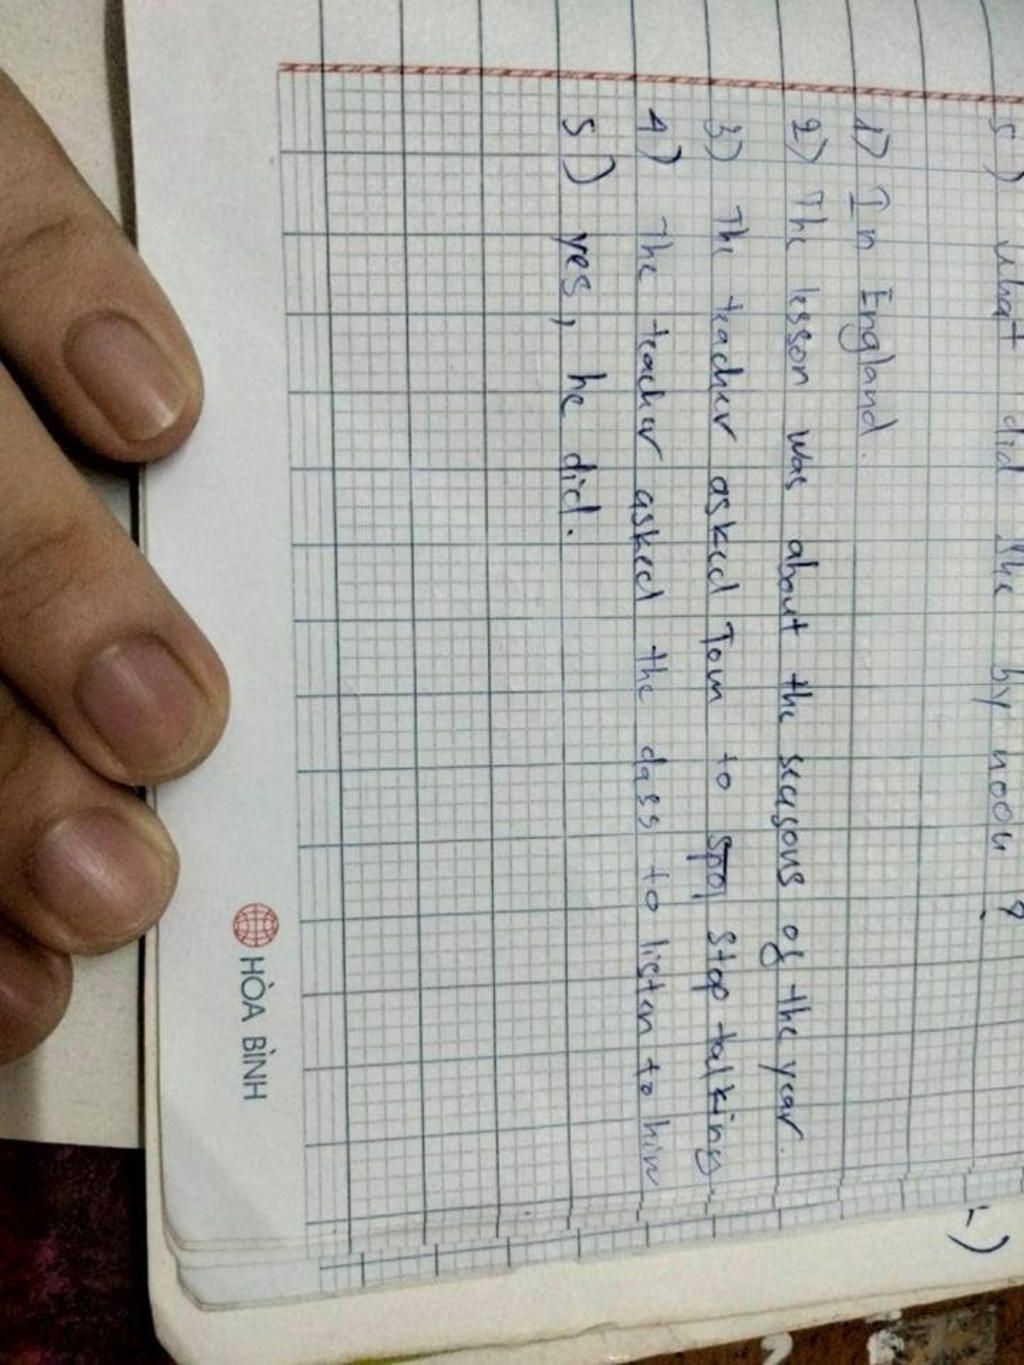 5) what did she by noon ?
1) In England.
2) The lesson was about the seasons of the year.
3) The teacher asked Tom to spo stop talking.
4) The teacher asked the class to listen to him
5) yes, he did.
HÒA BÌNH